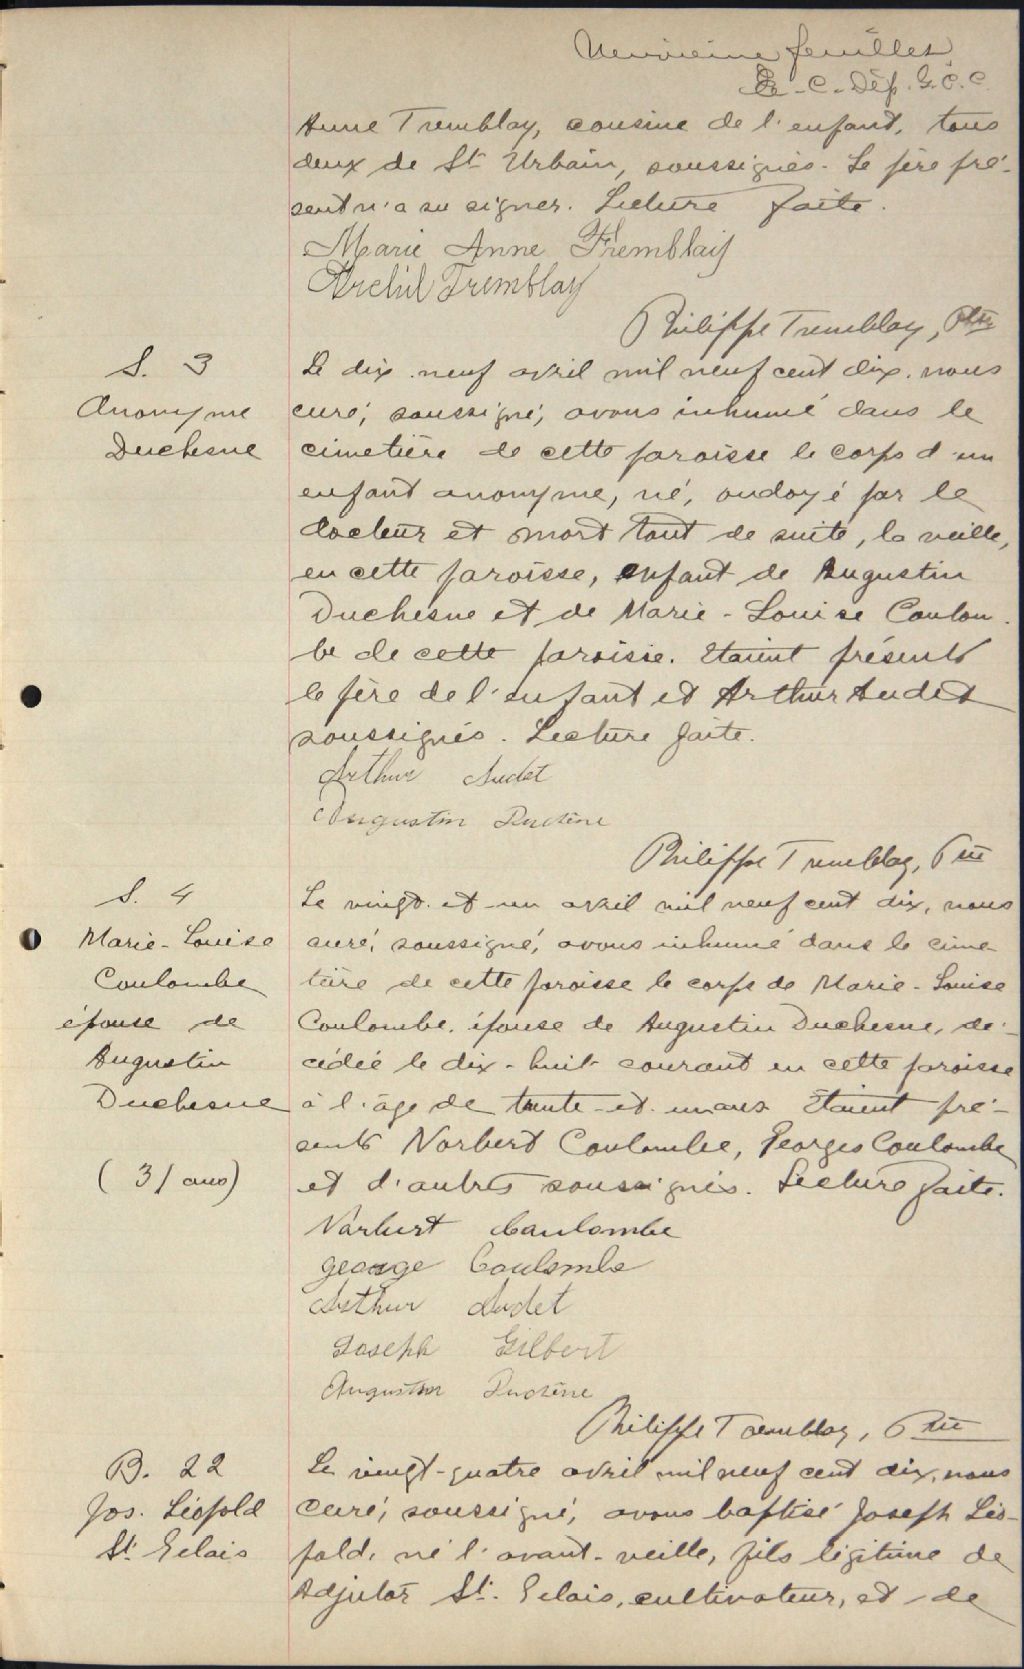 feuillet
C. Dép. G. C. C.
Anne Tremblay, cousine de l'enfant, tous
deux de St Urbain, soussignés. Le père pré-
sent n'a su signer. Lecture faite.
Marie Anne Tremblay
Archil Tremblay
Philippe Tremblay, Ptre
S. 3
Anonyme
Duchesne
Le dix-neuf avril mil neuf cent dix, nous
curé, soussigné, avons inhumé dans le
cimetière de cette paroisse le corps d'un
enfant anonyme, né, ondoyé par le
docteur et mort tout de suite, la veille,
en cette paroisse, enfant de Augustin
Duchesne et de Marie-Louise Coulom-
be de cette paroisse. Etaient présents
le père de l'enfant et Arthur Audet
soussignés. Lecture faite.
Arthur Audet
Augustin Duchène
Philippe Tremblay, Ptre
S. 4
Marie-Louise
Coulombe
épouse de
Augustin
Duchesne
(31 ans)
Le vingt-et-un avril mil neuf cent dix, nous
curé, soussigné, avons inhumé dans le cime-
tière de cette paroisse le corps de Marie-Louise
Coulombe, épouse de Augustin Duchesne, dé-
cédée le dix-huit courant en cette paroisse
à l'âge de trente-et-un ans. Etaient pré-
sents Norbert Coulombe, Georges Coulombe
et d'autres soussignés. Lecture faite.
Norbert Coulombe
George Coulombe
Arthur Audet
Joseph Gilbert
Augustin Duchène
Philippe Tremblay, Ptre
B. 22
Jos. Léopold
St. Gelais
Le vingt-quatre avril mil neuf cent dix, nous
curé, soussigné, avons baptisé Joseph Léo-
pold, né l'avant-veille, fils légitime de
Adjutor St. Gelais, cultivateur, et de